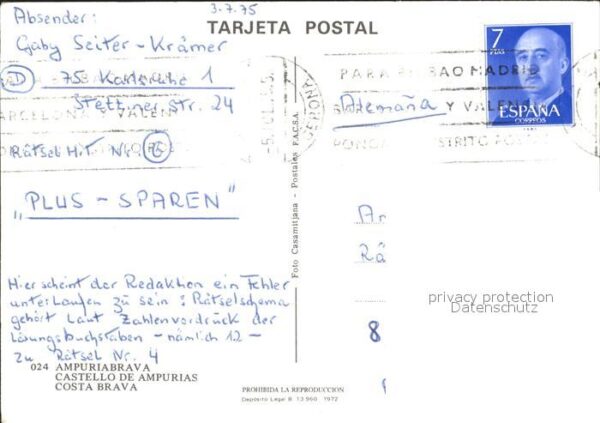 Absender:
3.7.75
TARJETA POSTAL
Gaby Seiter-Krämer
(D) 75 Karlsruhe 1
Stettiner Str. 24
Rätsel Hit Nr. 6
"PLUS - SPAREN"
Hier scheint der Redaktion ein Fehler
unterlaufen zu sein: Rätselschema
gehört laut Zahlenvordruck der
Lösungsbuchstaben - nämlich 12 -
zu Rätsel Nr. 4
024 AMPURIABRAVA
CASTELLO DE AMPURIAS
COSTA BRAVA
Foto Casamitjana - Postales F.A.C.S.A.
PROHIBIDA LA REPRODUCCION
Depósito Legal B. 13.960 - 1972
7
PTAS
ESPAÑA
CORREOS
PARA BAO MADRID
Alemaña
Y VALEN
BARCELONA VALEN
PONGA STRITO POS
Ar
Rä
8
privacy protection
Datenschutz